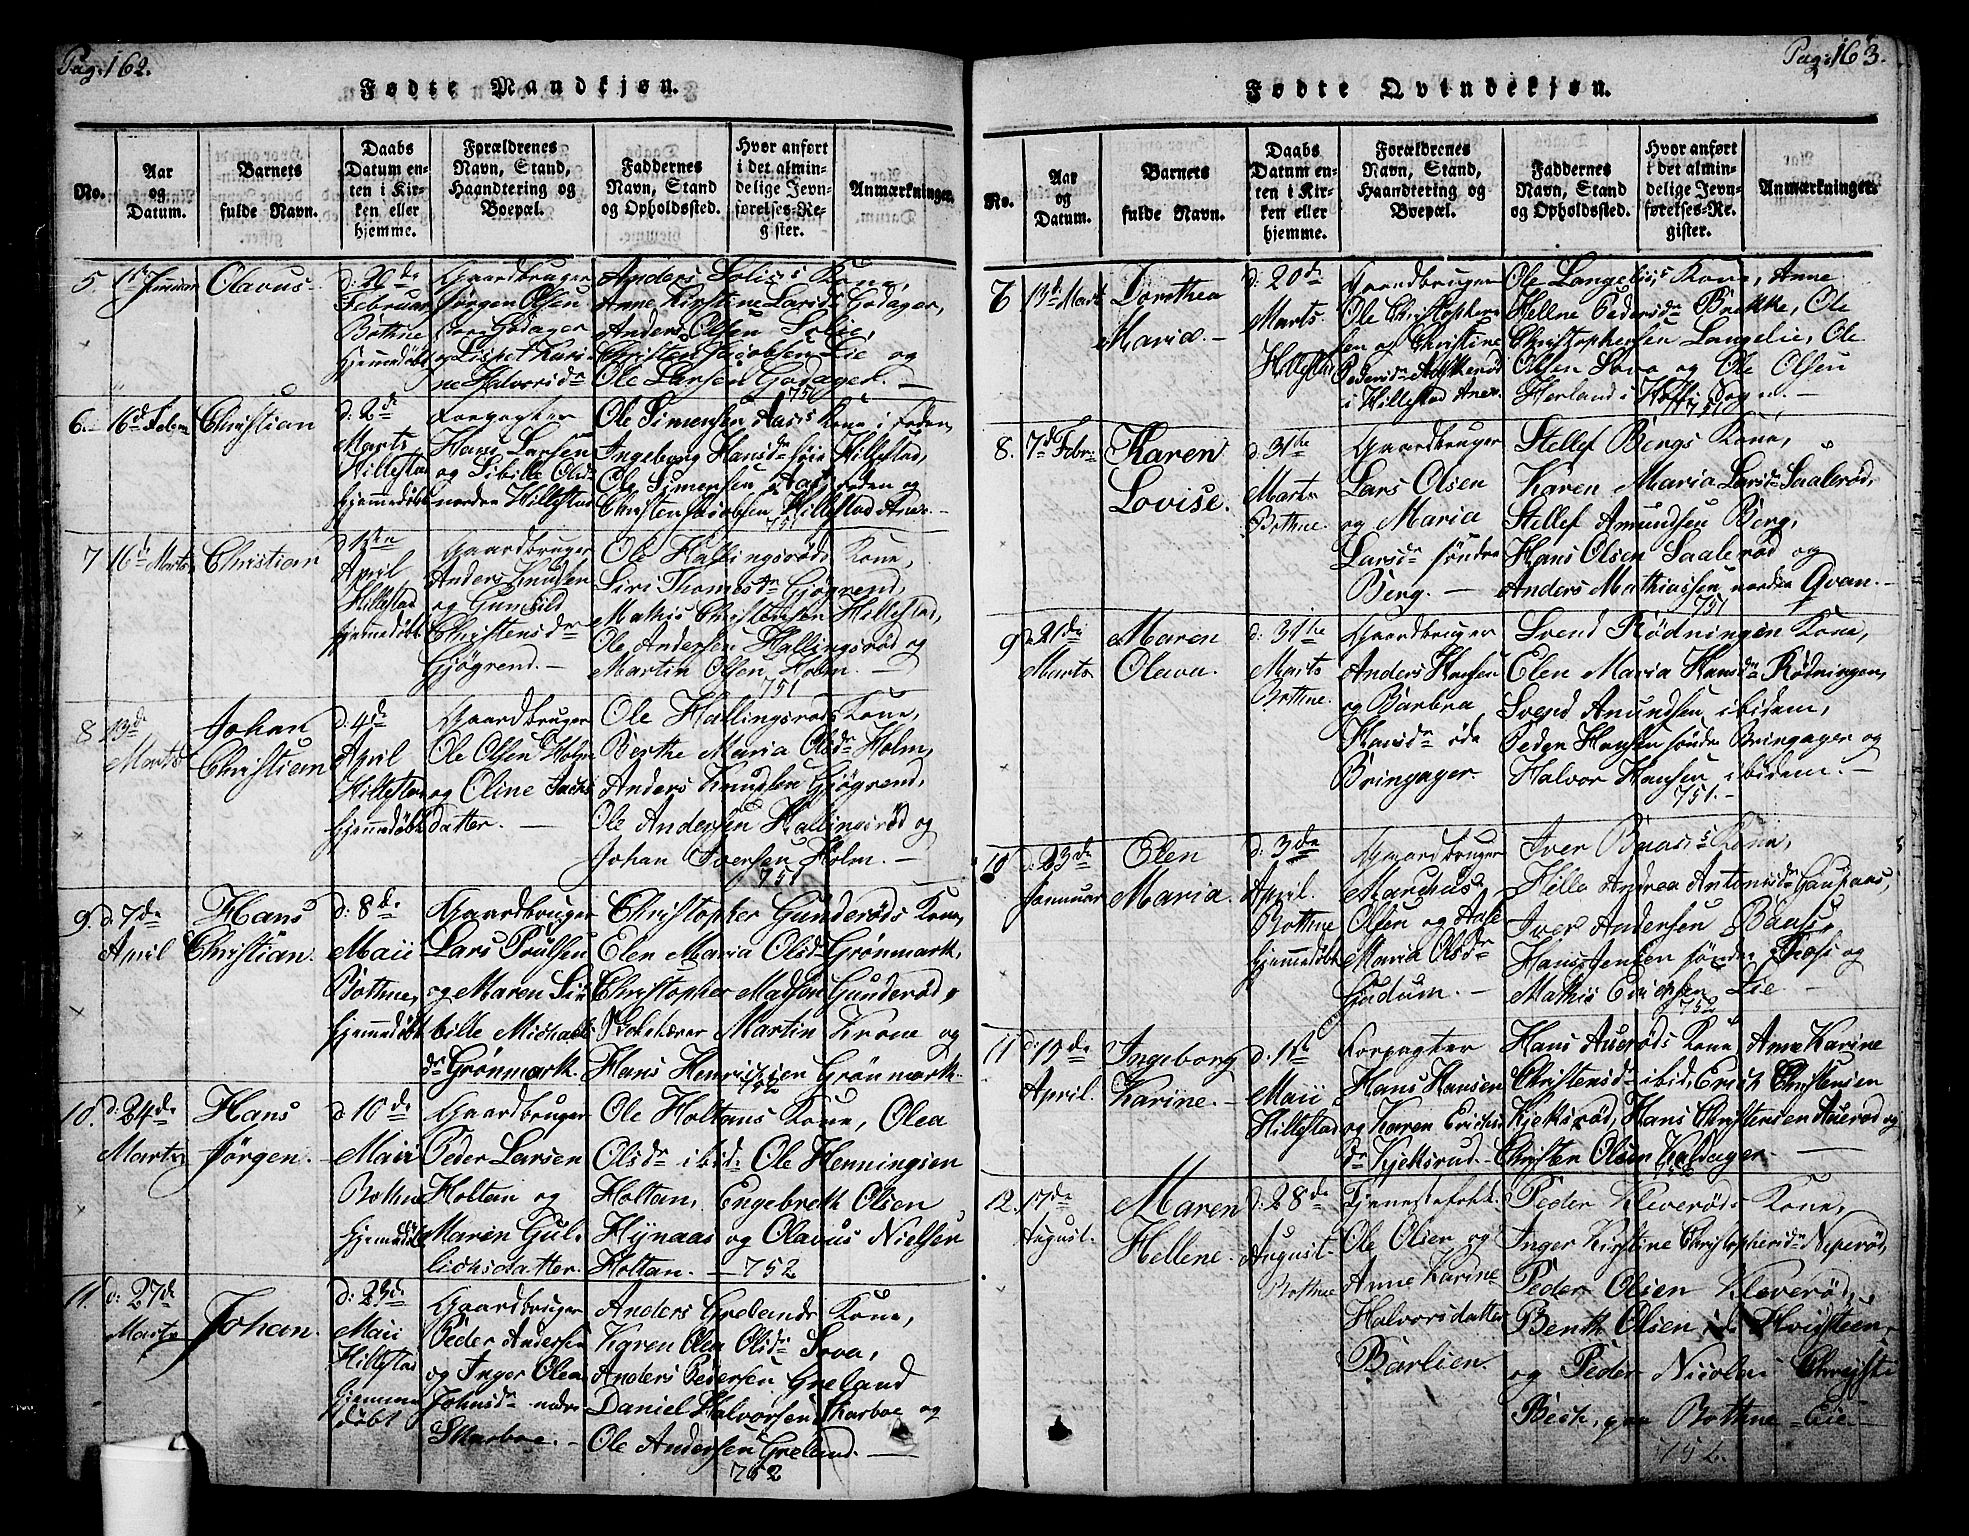 Pag: 162.
Fødte Mandkjøn.
No.
Aar og Datum.
Barnets fulde Navn.
Daabs Datum enten i Kirken eller hjemme.
Forældrenes Navn, Stand, Haandtering og Boepæl.
Faddernes Navn, Stand og Opholdssted.
Hvor anført i det almindelige Jevnførelses-Register.
Anmærkninger.
5.
Olavus
d: 20de
Februar
Bothne
hjemmedöbt
Gaardbruger
Jörgen Olsen
Godager
og Lispet Kari-
ne Halvorsdr
Anders Solies Kone,
Anne Kirstine Larsdr Godager,
Anders Olsen Solie,
Christen Jacobsen Lie og
Ole Larsen Godager. —
751
6.
16d Febru
Christian
d: 2de
Marts
Hillestad
hjemmedöbt
Forpagter
Hans Larsen
og Sibille Olsdr
nordre Hillestad
Ole Simensen Aas's Kone i Foden,
Ingeborg Hansdr söie Hillestad,
Ole Simensen Aasfoden og
Christen Jacobsen Hillestad Aner. —
751
7
16d Marts
Christian
d 1ste
April
Hillestad
hjemmedöbt
Gaardbruger
Anders Knudsen
og Gunild
Christensdr
Gjögrend. —
Ole Hallingsröds Kone,
Siri Thomesdr Gjögrend,
Mathis Christensen Hillestad,
Ole Andersen Hallingsröd og
Martin Olsen Holm —
751
8
13d
Marts
Johan
Christian
d: 4de
April
Hillestad
hjemmedöbt
Gaardbruger
Ole Olsen Holm
og Oline Jacobs
datter. —
Ole Hallingsröds Kone,
Berthe Maria Olsdr Holm,
Anders Knudsen Gjögrend,
Ole Andersen Hallingsröd og
Johan Iversen Holm. —
751
9.
d: 7de
April
Hans
Christian.
d: 8de
Maii
Bothne,
hjemmedöbt
Gaardbruger
Lars Poulsen
og Maren Si-
bille Michaels
dr Grönmark.
Christopher Gunderöds Kone,
Elen Maria Olsdr Grönmark,
Christopher Madsen Gunderöd,
Skolelærer Martin Krone og
Hans Henrichsen Grönmark.
752
10.
d: 24de
Marts
Hans
Jörgen. —
d 10de
Maii
Bothne
hjemmedöbt
Gaardbruger
Peder Larsen
Holtan og
Maren Gul-
lichsdatter.
Ole Holtans Kone, Olea
Olsdr ibid: Ole Henningsen
Holtan, Engebreth Olsen
Hynaas og Olavus Nielsen
Holtan. — 752
11.
d: 27de
Marts
Johan.
d: 23de
Maii
Hillestad
hjemme
döbt
Gaardbruger
Peder Andersen
og Inger Olea
Johnsdr nedre
Skarboe. —
Anders Grelands Kone,
Karen Olea Olsdr Sova,
Anders Pedersen Greland
Daniel Halvorsen Skarboe og
Ole Andersen Greland. —
752
Pag: 163.
Fødte Qvindekjøn.
No.
Aar og Datum.
Barnets fulde Navn.
Daabs Datum enten i Kirken eller hjemme.
Forældrenes Navn, Stand, Haandtering og Boepæl.
Faddernes Navn, Stand og Opholdssted.
Hvor anført i det almindelige Jevnførelses-Register.
Anmærkninger.
7
13d Marts
Dorthea
Maria. —
d: 20de
Marts
Hillestad
Gaardbruger
Ole Christopher
sen og Christine
Pedersdr
i Hillestad Anex.
Ole Langelies Kone, Anne
Hellne Pedersdr Brekke, Ole
Christophersen Langelie, Ole
Olsen Sova og Ole Olsen
Herland i Hoff Sogn. —
751
8.
7d Febr:
Karen
Lovise.
d: 31te
Marts
Bothne.
Gaardbruger
Lars Olsen
og Maria
Larsdr söndre
Berg. —
Stellef Bergs Kone,
Karen Maria Larsdr Saaleröd,
Stellef Amundsen Berg,
Hans Olsen Saaleröd og
Anders Mathiassen nordre Qvan. —
751
9
21de
Marts
Maren
Olava.
d: 31te
Marts
Bothne.
Gaardbruger
Anders Hansen
og Barbra
Hansdr öde
Bringager.
Svend Rödningen Kone,
Elen Maria Hansdr Rödningen,
Svend Amundsen ibidem,
Peder Hansen söndre Bringager og
Halvor Hansen ibidem. —
751. —
10
d: 23de
Januar
Elen
Maria.
d: 3de
April.
Bothne
hjemmedöbt
Gaardbruger
Marchus
Olsen og Aase
Maria Olsdr
Gudum. —
Iver Baas's Kone,
Hilla Andrea Antonisdr Gaupaas,
Iver Andersen Baas,
Hans Jensen söndre Raast og
Mathis Erichsen Lie —
752
11
d: 19de
April.
Ingeborg
Karine. —
d: 1st
Maii
Hillestad
Forpagter
Hans Hansen
og Karen Erichs
dr Kjeksrud. —
Hans Aueröds Kone Anne Karine
Christensdr ibid, Erich Christensen
Kjeksröd, Hans Christensen Aueröd og
Christen Olsen Kaldager. —
12.
17de
August.
Maren
Hellene.
d: 28de
August
Bothne
Tjenestefolk
Ole Olsen og
Anne Karine
Halvorsdatter
Barlien.
Peder Kleveröds Kone,
Inger Kirstine Christophersdr Neperöd,
Peder Olsen Kleveröd,
Benth Olsen Hvidsteen
og Peder Nicolai
Bech, paa Bothne-Eie —
752.